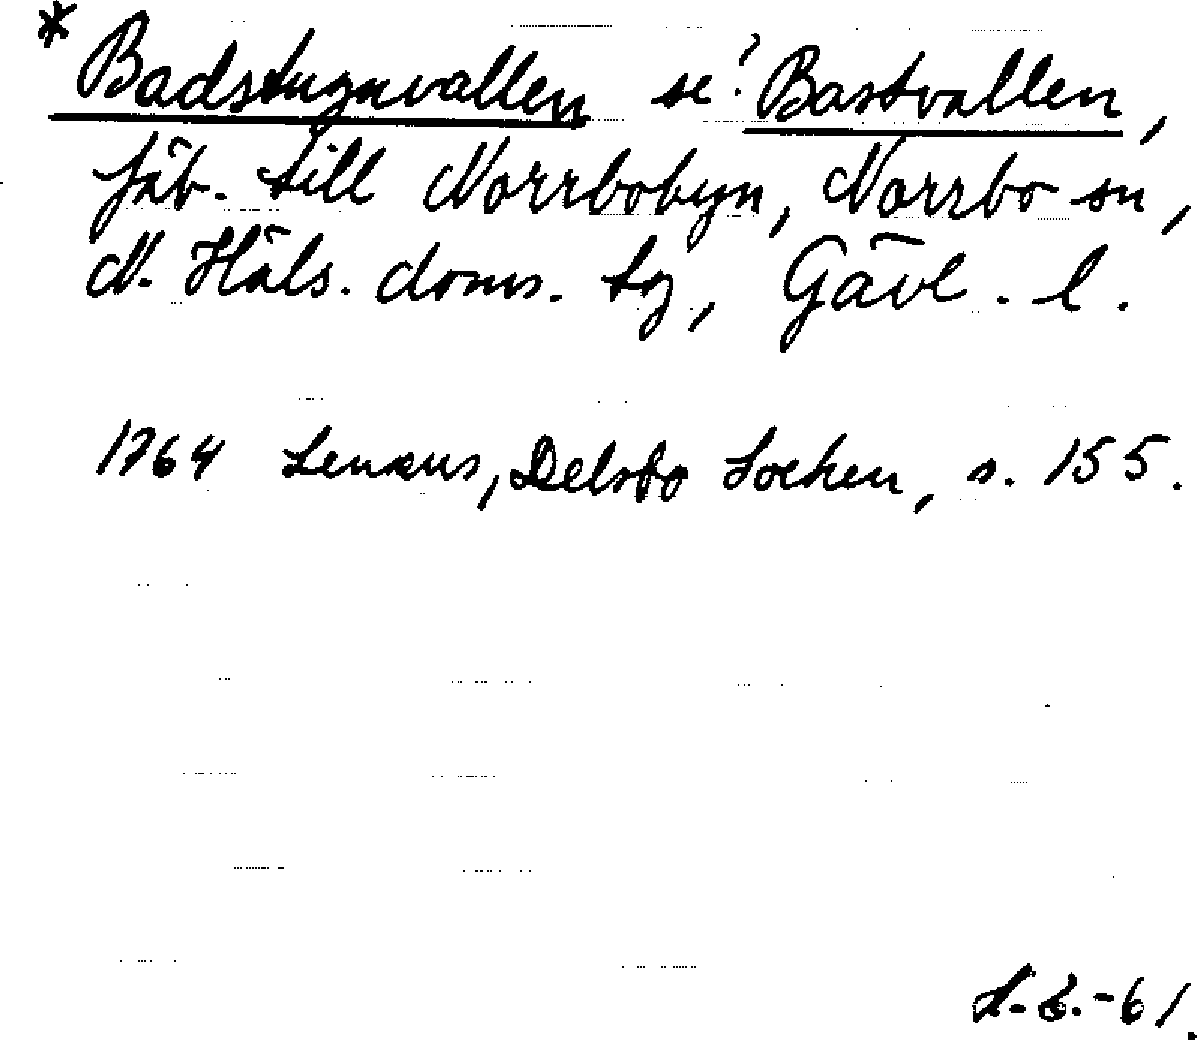 * Badstugnvallen se? Bastvallen,
fäb. till Norrbobyn, Norrbo sn,
N. Häls. doms. tg, Gävl. l.
1764 Lenæus, Delsbo Socken, s. 155.
-61.